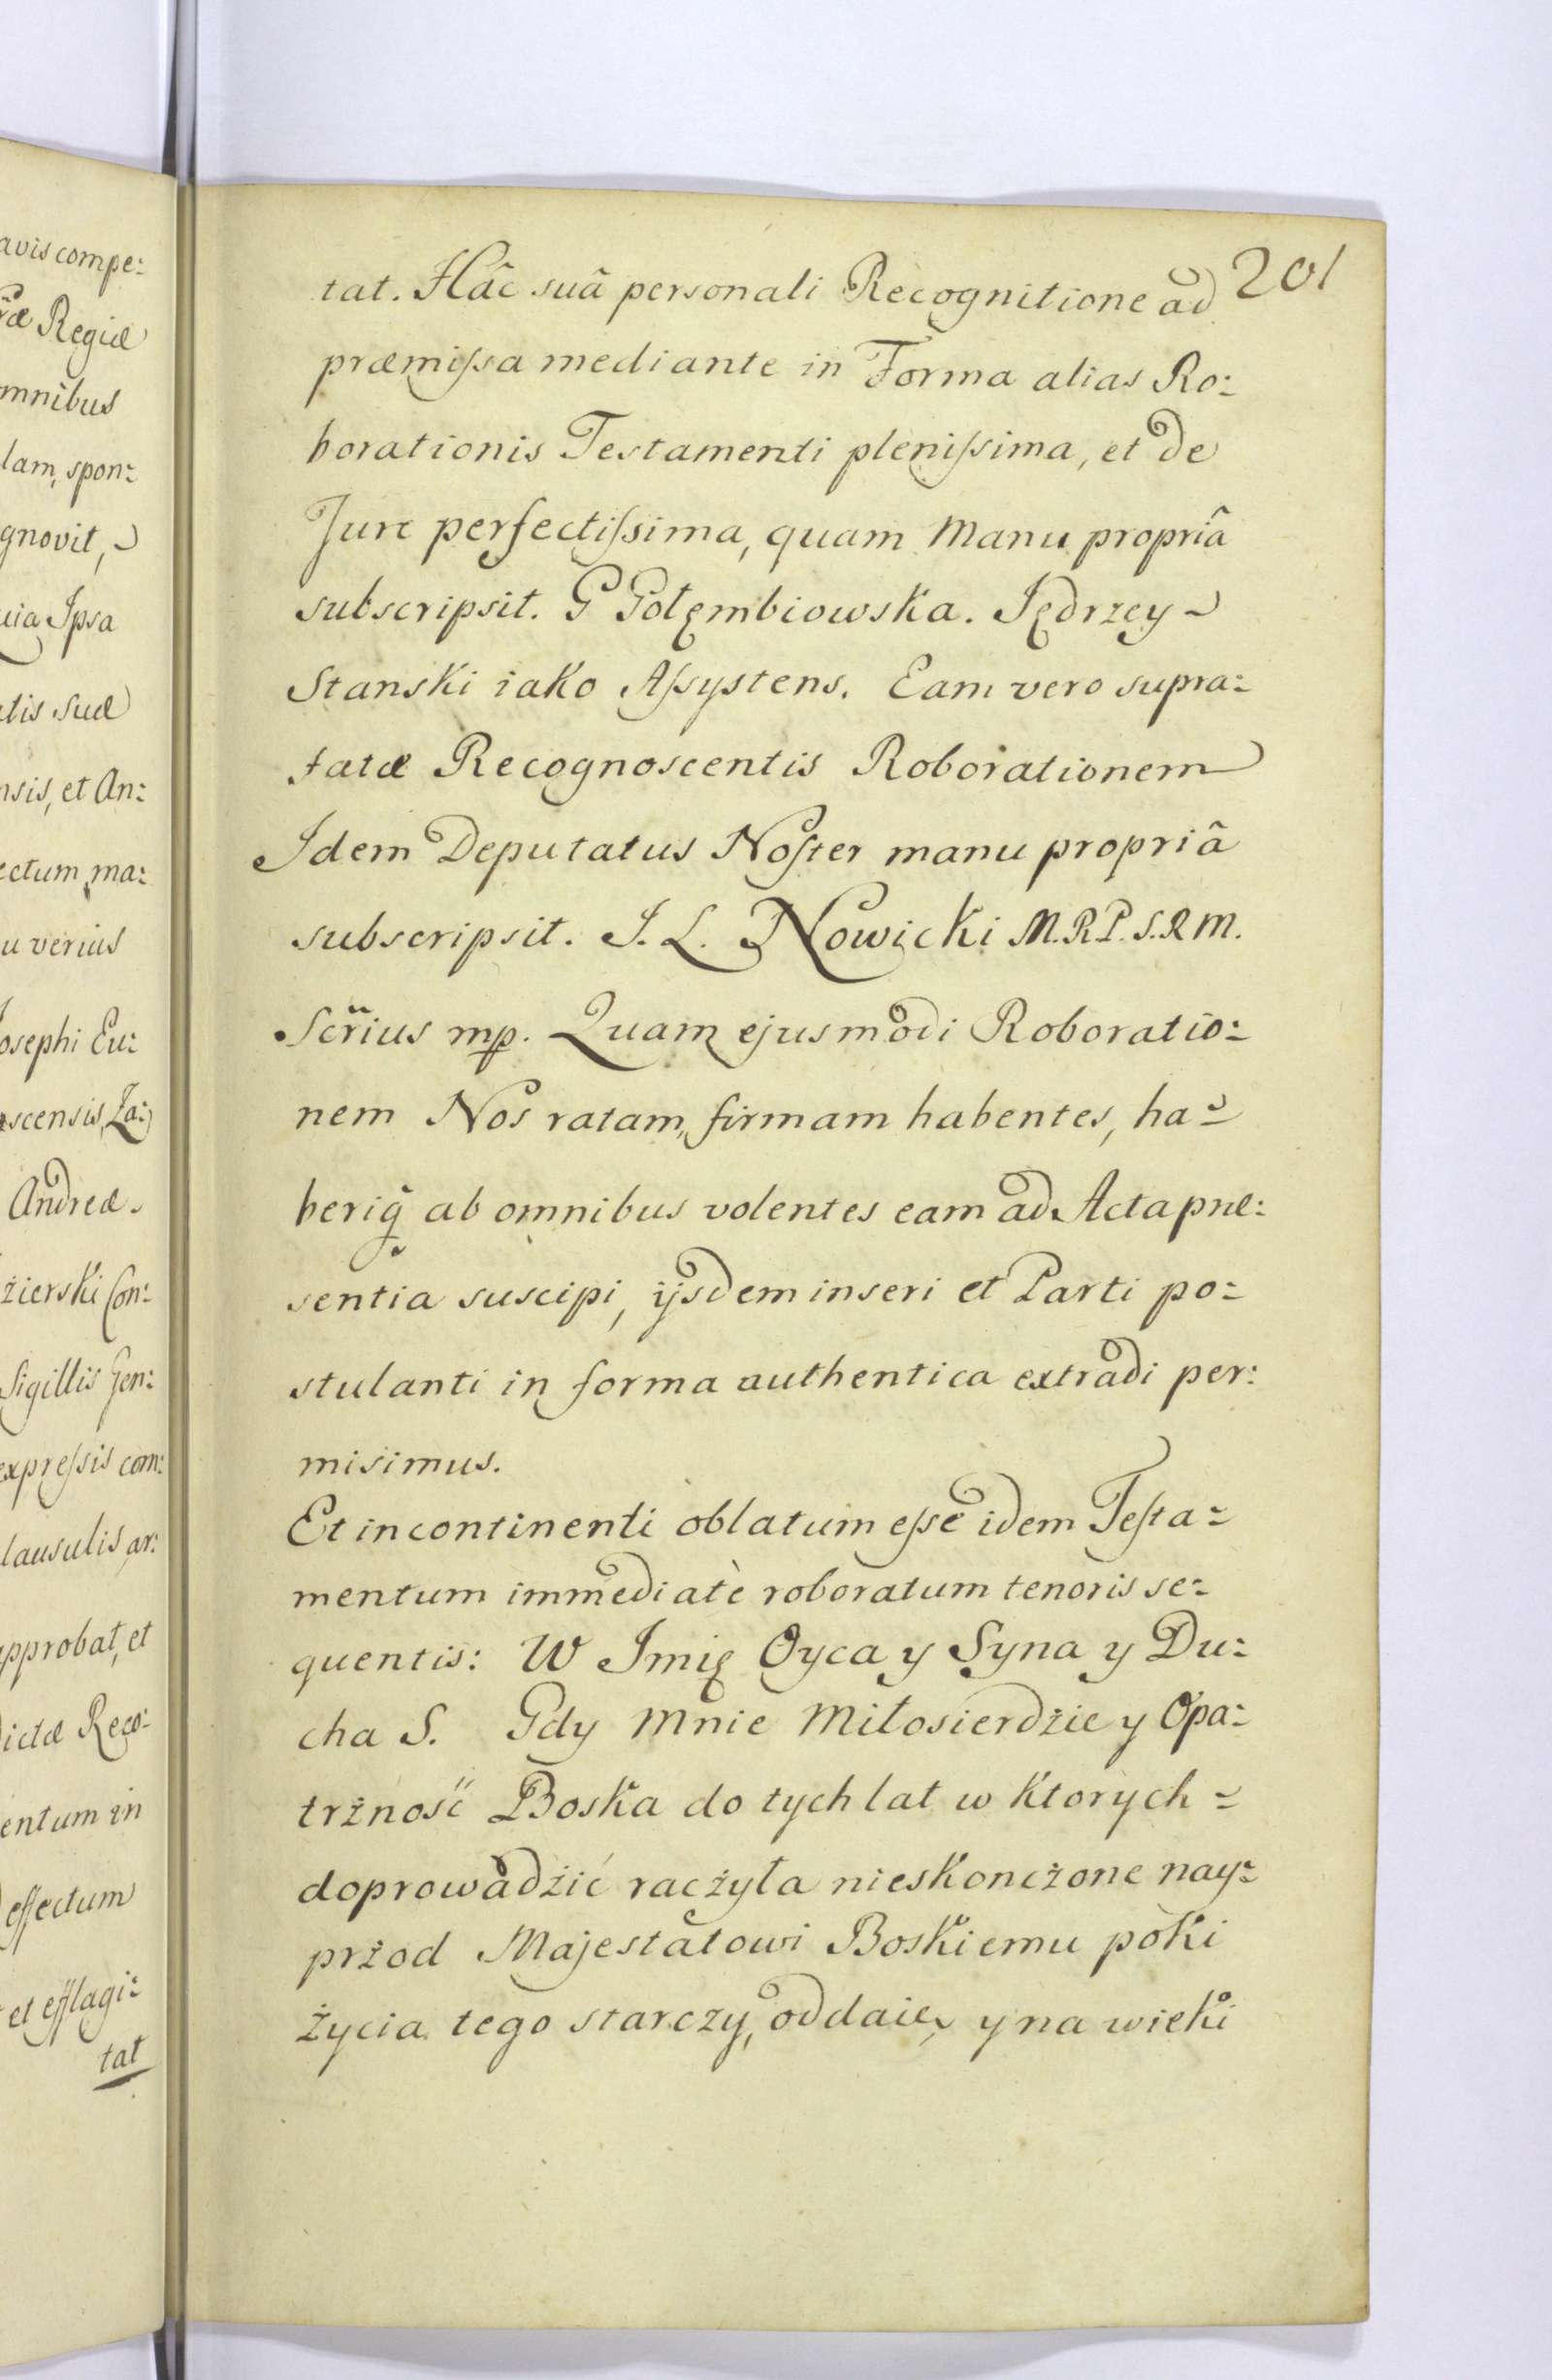 avis compe:
Regiæ
omnibus
lam, spon:
gnovit,
uia Ipsa
atis suæ
nsis, et An:
ectum, ma:
u verius
Josephi Eu:
scensis, Za:
Andreæ
zierski Con:
Sigillis Gen:
expreſsis com:
lausulis ar:
approbat, et
dictæ Reco:
entum in
effectum
et efflagi:
tat
201
tat. Hâc suâ personali Recognitione ad
præmiſsa mediante in Forma alias Ro:
borationis Testamenti pleniſsima, et de
Jure perfectiſsima, quam Manu propriâ
subscripsit. G Gołembiowska. Jędrzey
Stanski iako Aſsystens. Eam vero supra:
fatæ Recognoscentis Roborationem
Idem Deputatus Noſter manu propriâ
subscripsit. J. L. Nowicki M.R.P. S.R.M.
Scrius mp. Quam ejusmodi Roboratio:
nem Nos ratam, firmam habentes, ha:
beriq̃ ab omnibus volentes eam ad Acta præ:
sentia suscipi, ijsdem inseri et Parti po:
stulanti in forma authentica extradi per:
misimus.
Et incontinenti oblatum eſse idem Teſta:
mentum immediatè roboratum tenoris se:
quentis: W Imię Oyca y Syna y Du:
cha S. Gdy Mnie Miłosierdżie y Opa:
trżność Boska do tych lat w ktorych
doprowadżić racżyła nieskoncżone nay:
prżod Majestatowi Boskiemu poki
życia tego starczy, oddaię, y na wieki